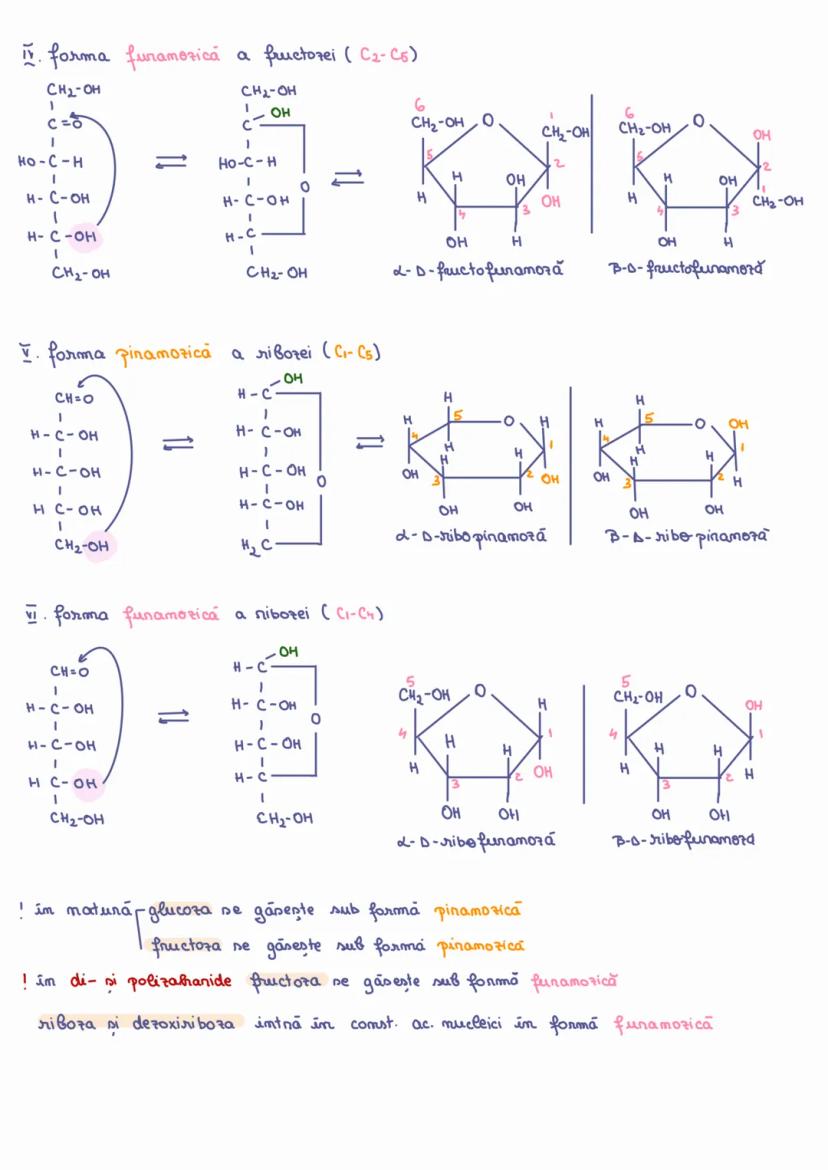 IV. forma furanozică a fructozei ( C2-C5)
CH2-OH
C=O
HO-C-H
H-C-OH
H-C-OH
CH2-OH
CH2-OH
OH
C
HO-C-H
H-C-OH
O
H-C
CH2-OH
6
CH2-OH
O
1
CH2-OH
5
2
H
H
OH
OH
4
3
OH
H
α-D-fructofuranoză
6
CH2-OH
O
OH
5
2
H
H
OH
1
CH2-OH
4
3
OH
H
β-D-fructofuranoză
V. forma piranozică a ribozei ( C1-C5)
CH=O
H-C-OH
H-C-OH
H C-OH
CH2-OH
OH
H-C
H-C-OH
H-C-OH
O
H-C-OH
H2C
H
H
5
O
H
4
H
1
OH
H
H
3
2
OH
OH
OH
α-D-ribopiranoză
H
H
5
O
OH
4
H
1
OH
H
H
3
2
H
OH
OH
β-D-ribopiranoză
VI. forma furanozică a ribozei ( C1-C4)
CH=O
H-C-OH
H-C-OH
H C-OH
CH2-OH
OH
H-C
H-C-OH
O
H-C-OH
H-C
CH2-OH
5
CH2-OH
O
H
4
1
H
H
H
2
OH
3
OH
OH
α-D-ribofuranoză
5
CH2-OH
O
OH
4
1
H
H
H
2
H
3
OH
OH
β-D-ribofuranoză
! în natură glucoza se găsește sub formă piranozică
fructoza se găsește sub formă piranozică
! în di- și polizaharide fructoza se găsește sub formă furanozică
riboza și dezoxiriboza intră în const. ac. nucleici în formă furanozică